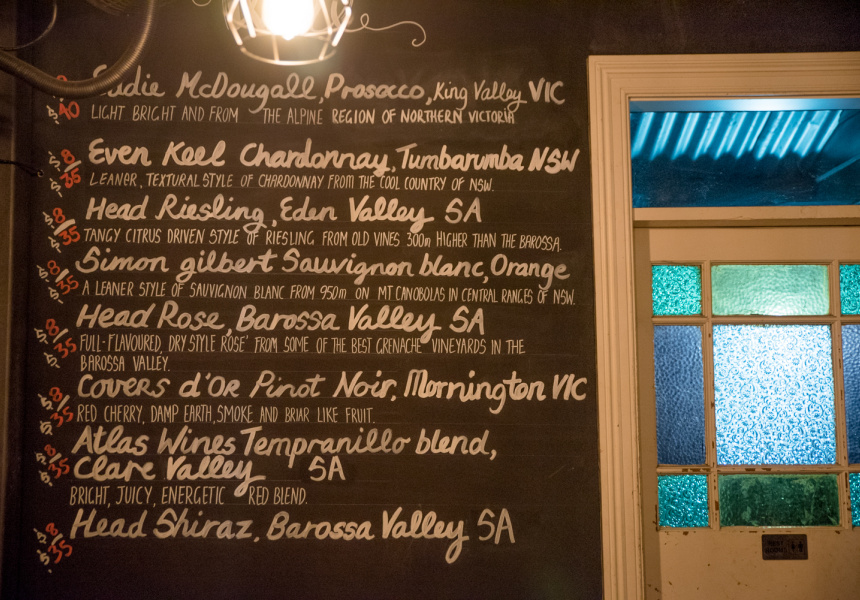 $8/$40 Eadie McDougall, Prosocco, King Valley VIC
LIGHT BRIGHT AND FROM THE ALPINE REGION OF NORTHERN VICTORIA
$8/$35 Even Keel Chardonnay, Tumbarumba NSW
LEANER, TEXTURAL STYLE OF CHARDONNAY FROM THE COOL COUNTRY OF NSW.
$8/$35 Head Riesling, Eden Valley SA
TANGY CITRUS DRIVEN STYLE OF RIESLING FROM OLD VINES 300m HIGHER THAN THE BAROSSA.
$8/$35 Simon gilbert Sauvignon blanc, Orange
A LEANER STYLE OF SAUVIGNON BLANC FROM 950m ON MT CANOBOLAS IN CENTRAL RANGES OF NSW.
$8/$35 Head Rose, Barossa Valley SA
FULL-FLAVOURED, DRY STYLE ROSE' FROM SOME OF THE BEST GRENACHE VINEYARDS IN THE
BAROSSA VALLEY.
$8/$35 Covers d'Or Pinot Noir, Mornington VIC
RED CHERRY, DAMP EARTH, SMOKE AND BRIAR LIKE FRUIT.
$8/$35 Atlas Wines Tempranillo blend,
Clare Valley SA
BRIGHT, JUICY, ENERGETIC RED BLEND.
$8/$35 Head Shiraz, Barossa Valley SA